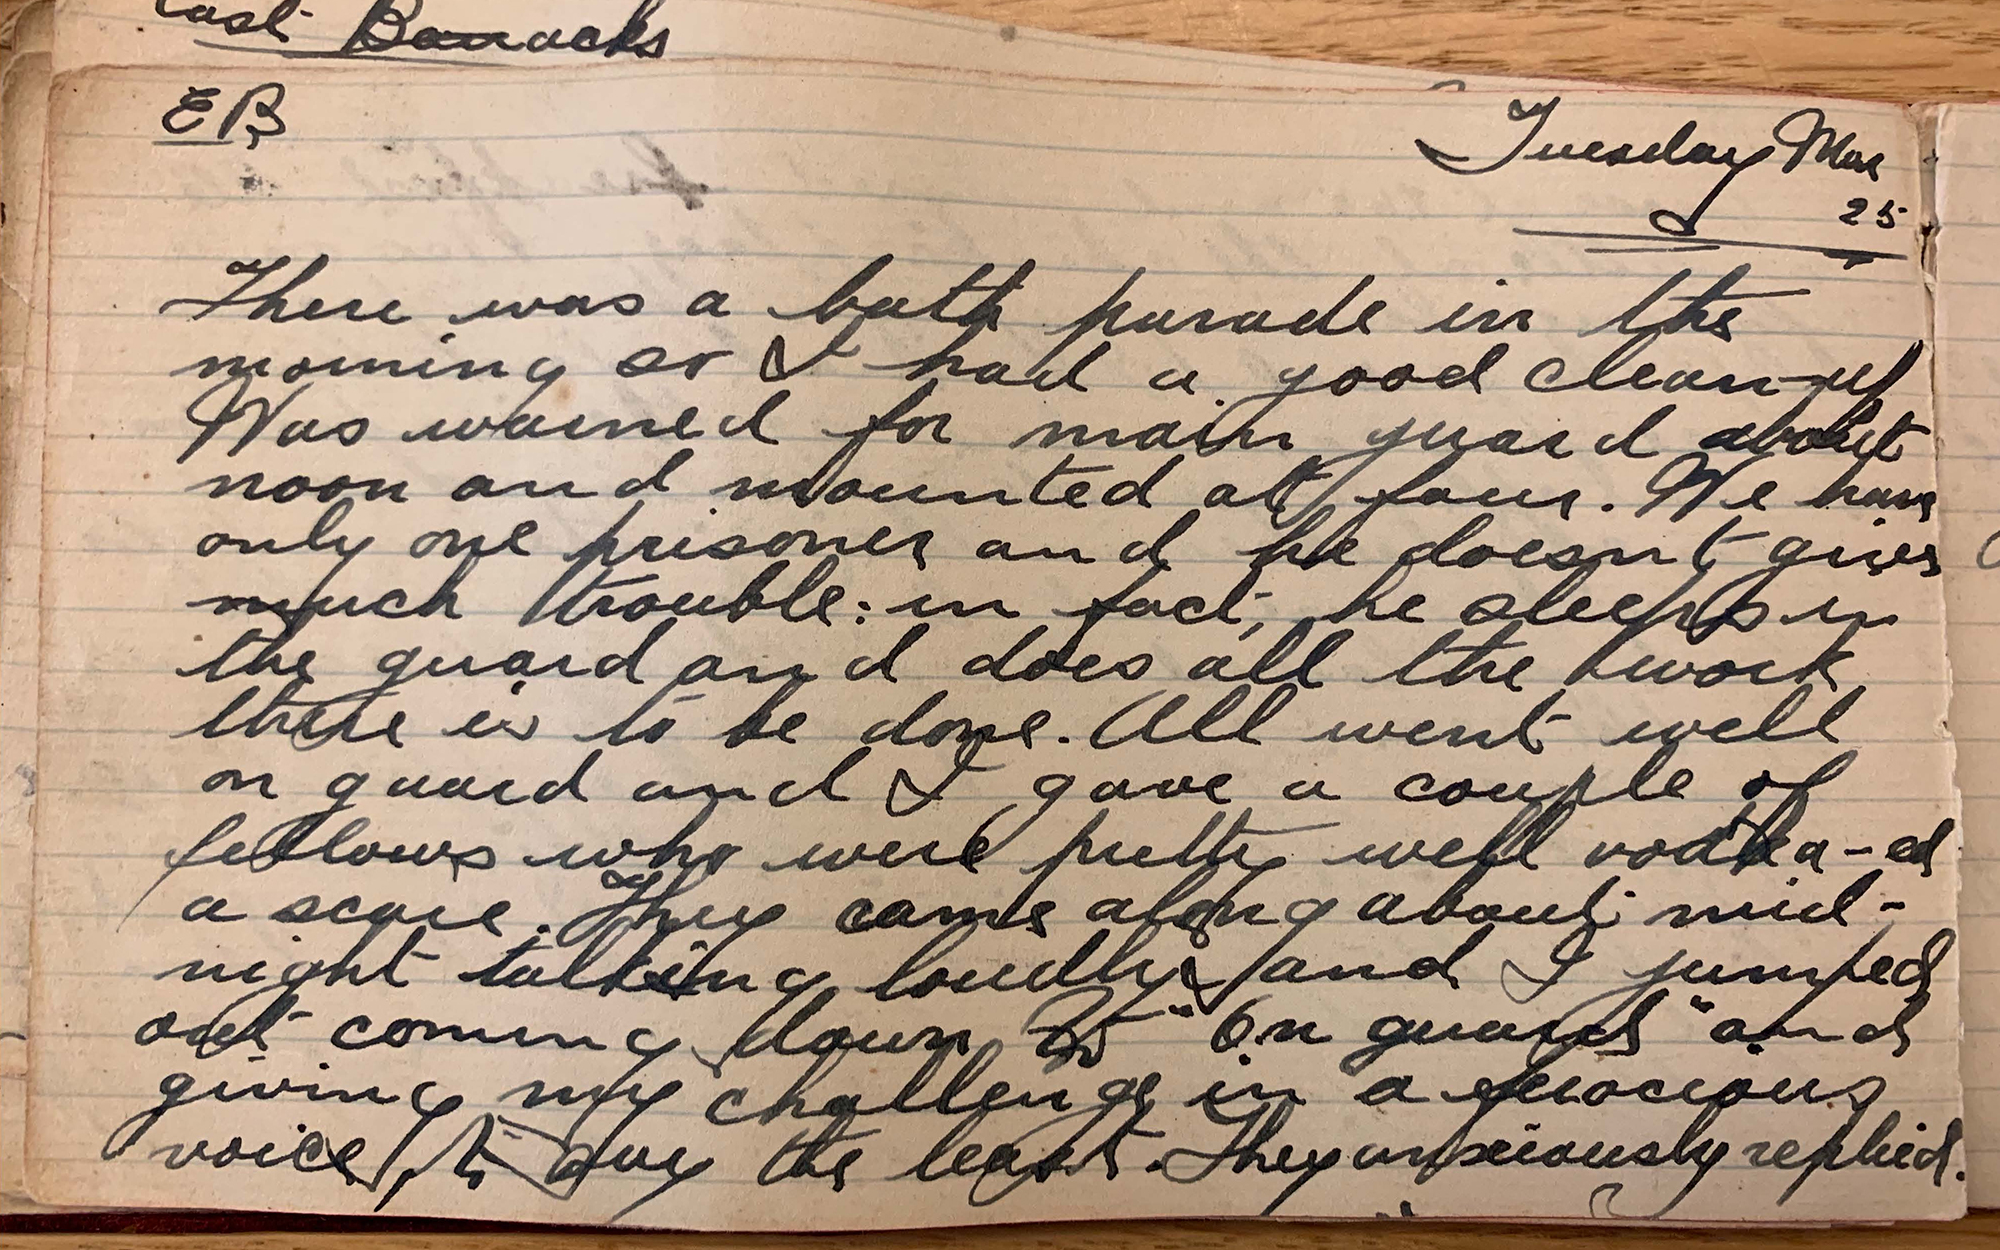 East Barracks
EB
Tuesday Mar
25
There was a bath parade in the
morning so I had a good clean-up
Was warned for main guard about
noon and mounted at four. We have
only one prisoner and he doesn't give
much trouble: in fact, he sleeps in
the guard and does all the work
there is to be done. All went well
on guard and I gave a couple of
fellows who were pretty well vodka-ed
a scare. They came along about mid-
night talking loudly and I jumped
out coming down to "On guard" and
giving my challenge in a ferocious
voice, to say the least. They anxiously replied.